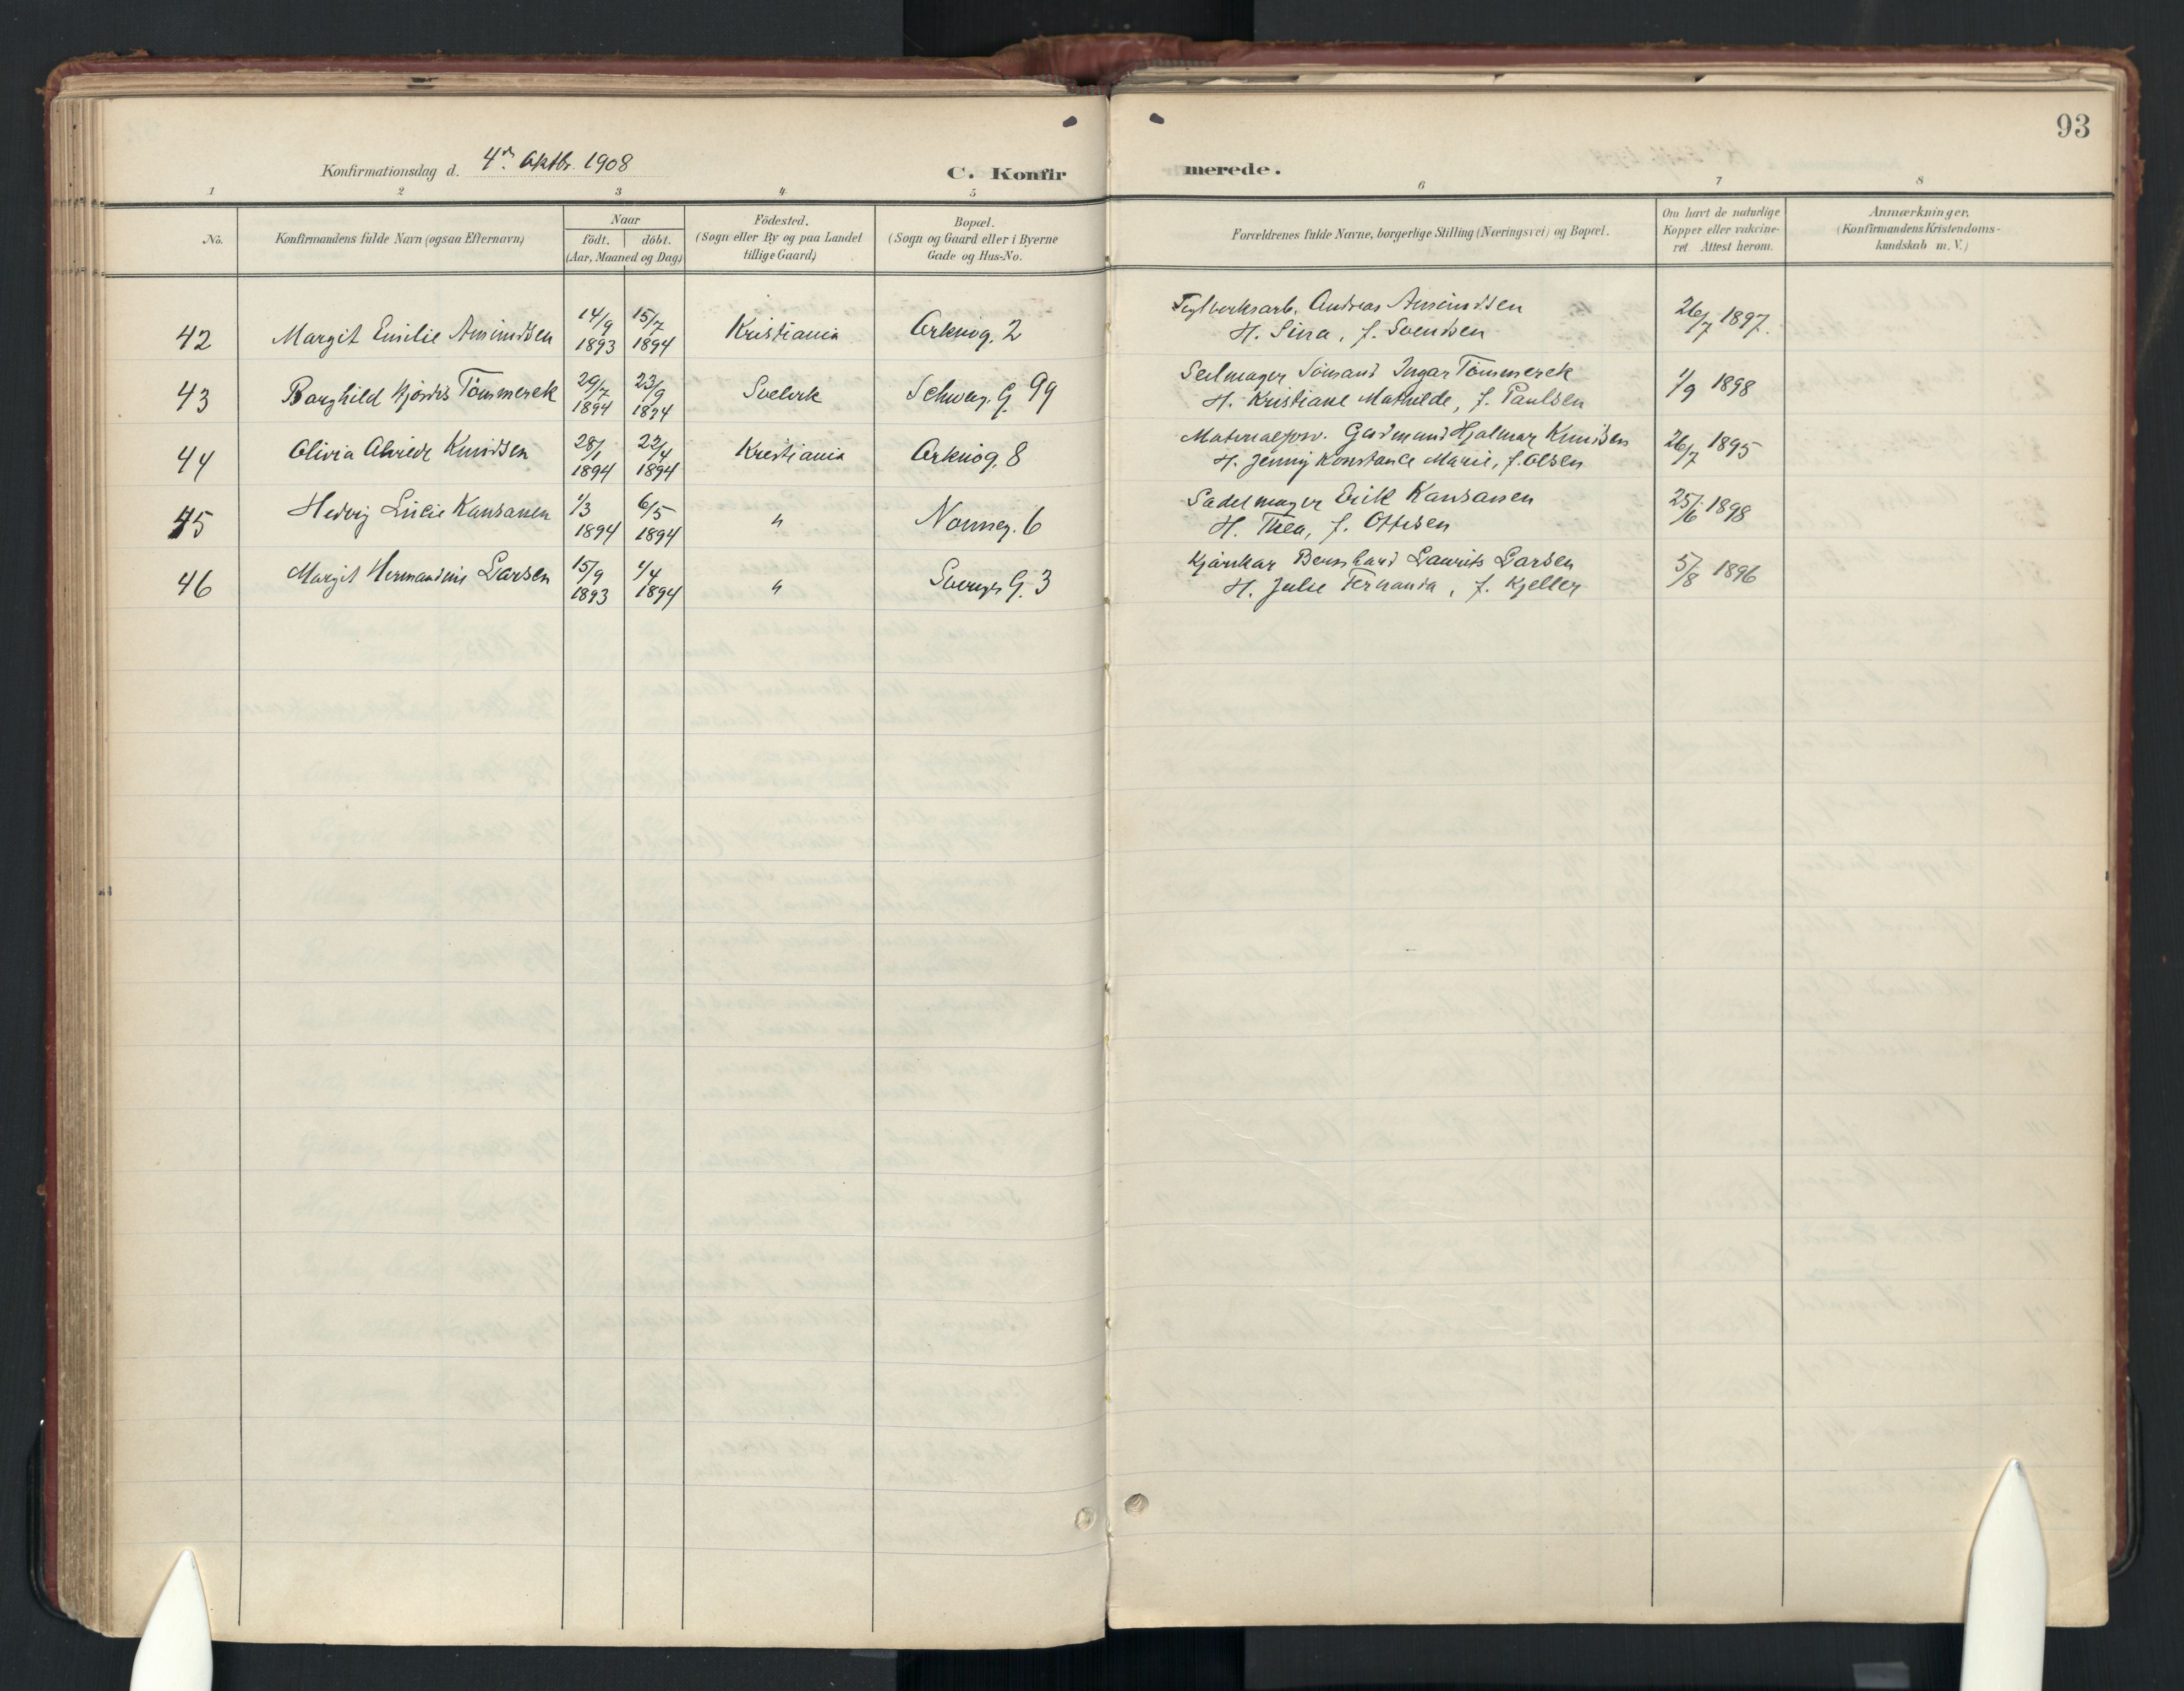 93
Konfirmationsdag d. 4de Oktbr. 1908
C. Konfirmerede.
1 2 3 4 5 6 7 8
No.
Konfirmandens fulde Navn (ogsaa Efternavn)
Naar
födt. döbt.
(Aar, Maaned og Dag)
Födested.
(Sogn eller By og paa Landet
tillige Gaard)
Bopæl.
(Sogn og Gaard eller i Byerne
Gade og Hus-No.
Forældrenes fulde Navne, borgerlige Stilling (Næringsvei) og Bopæl.
Om havt de naturlige
Kopper eller vakcine-
ret. Attest herom.
Anmærkninger.
(Konfirmandens Kristendoms-
kundskab m. V.)
42 Margit Emilie Amundsen 14/9 1893 15/7 1894 Kristiania 2 Teglverksarb. Andreas Amundsen
H. Sina, f. Svendsen 26/7 1897.
43 Borghild Hjördis Tömmerek 29/7 1894 23/9 1894 Svelvik Schweg. G. 99 Seilmager Ingar Tömmerek
H. Kristiane Mathilde, f. Paulsen 1/9 1898
44 Olivia Knudsen 28/1 1894 22/4 1894 Kristiania 8 Materialforv. Gudmund Hjalmar Knudsen
H. Jenny Konstance Marie, f. Olsen 26/7 1895
45 Hedvig Lucie Kansanen 1/3 1894 6/5 1894 " Normeg. 6 Sadelmager Erik Kansanen
H. Thea, f. Ottesen 25/6 1898
46 Margit Hermandine Larsen 15/9 1893 1/4 1894 " Sverges G. 3 Kjørekar Bernhard Laurits Larsen
H. Julie Fernanda, f. Kjeller 5/8 1896